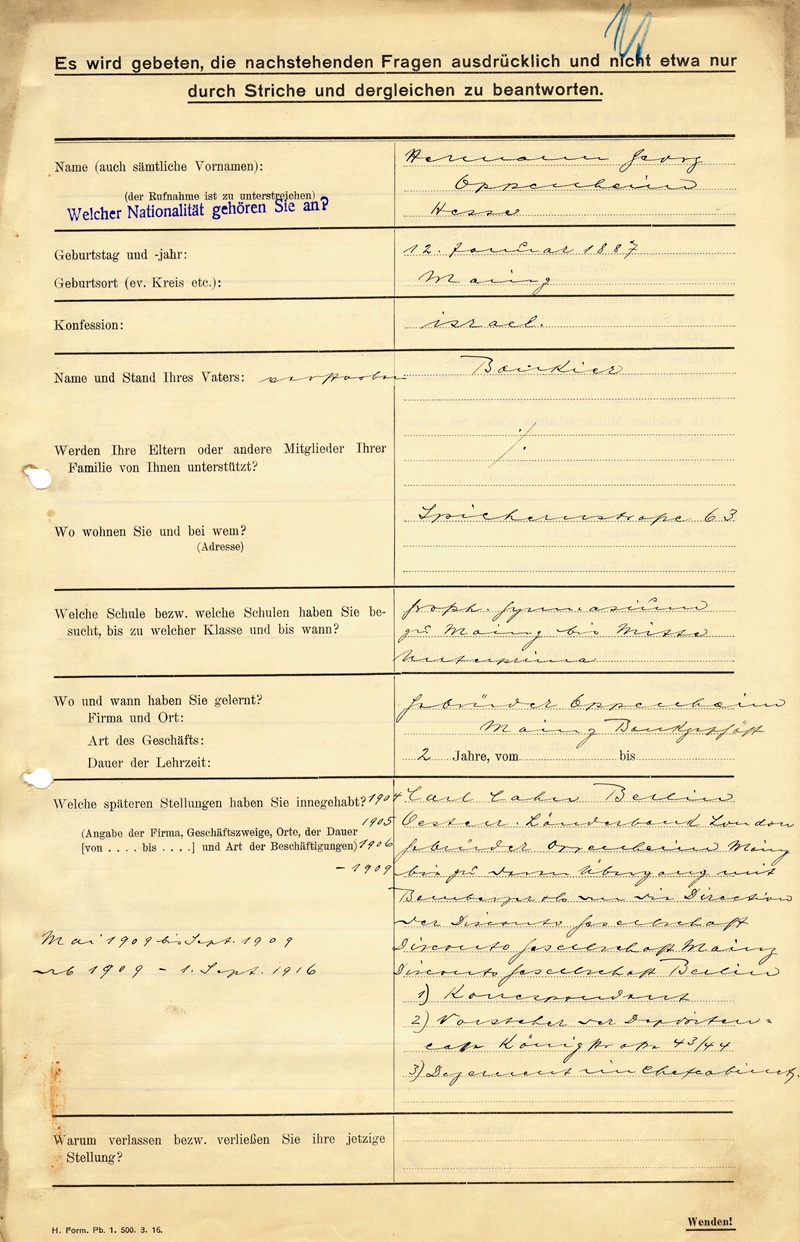 Es wird gebeten, die nachstehenden Fragen ausdrücklich und nicht etwa nur
durch Striche und dergleichen zu beantworten.
Name (auch sämtliche Vornamen): Hermann Georg
Oppenheim
(der Rufnahme ist zu unterstreichen)
Welcher Nationalität gehören Sie an? Hesse
Geburtstag und -jahr: 12. Januar 1887
Geburtsort (ev. Kreis etc.): Mainz
Konfession: israel.
Name und Stand Ihres Vaters: verstorben Bankier
Werden Ihre Eltern oder andere Mitglieder Ihrer
Familie von Ihnen unterstützt? ./.
Wo wohnen Sie und bei wem? Spichernstraße 63
(Adresse)
Welche Schule bezw. welche Schulen haben Sie be- Großh. Gymnasium
sucht, bis zu welcher Klasse und bis wann? zu Mainz bis Mitte
Unterprima
Wo und wann haben Sie gelernt? Gebrüder Oppenheim
Firma und Ort: Mainz Bankgeschäft
Art des Geschäfts:
Dauer der Lehrzeit: 2 Jahre, vom bis
Welche späteren Stellungen haben Sie innegehabt? 1904 Carl Cahn Berlin
1905 Oesterr. Länderbank London
(Angabe der Firma, Geschäftszweige, Orte, der Dauer
[von . . . . bis . . . .] und Art der Beschäftigungen) 1906 Gebrüder Oppenheim Mainz
– 1909 bis zu deren Übergang mit
Bamberger & Co an die Direction
der Disconto Gesellschaft
Mai 1909 bis Sept. 1909 Disconto Gesellschaft Mainz
ab 1909 – 1. Sept. 1916 Disconto Gesellschaft Berlin
1) Korrespondent
2) Vorsteher der Depositen-
casse Königstraße 43/44
3) Dezernent im Chefcabinet.
Warum verlassen bezw. verließen Sie ihre jetzige
Stellung?
H. Form. Pb. 1. 500. 3. 16.
Wenden!